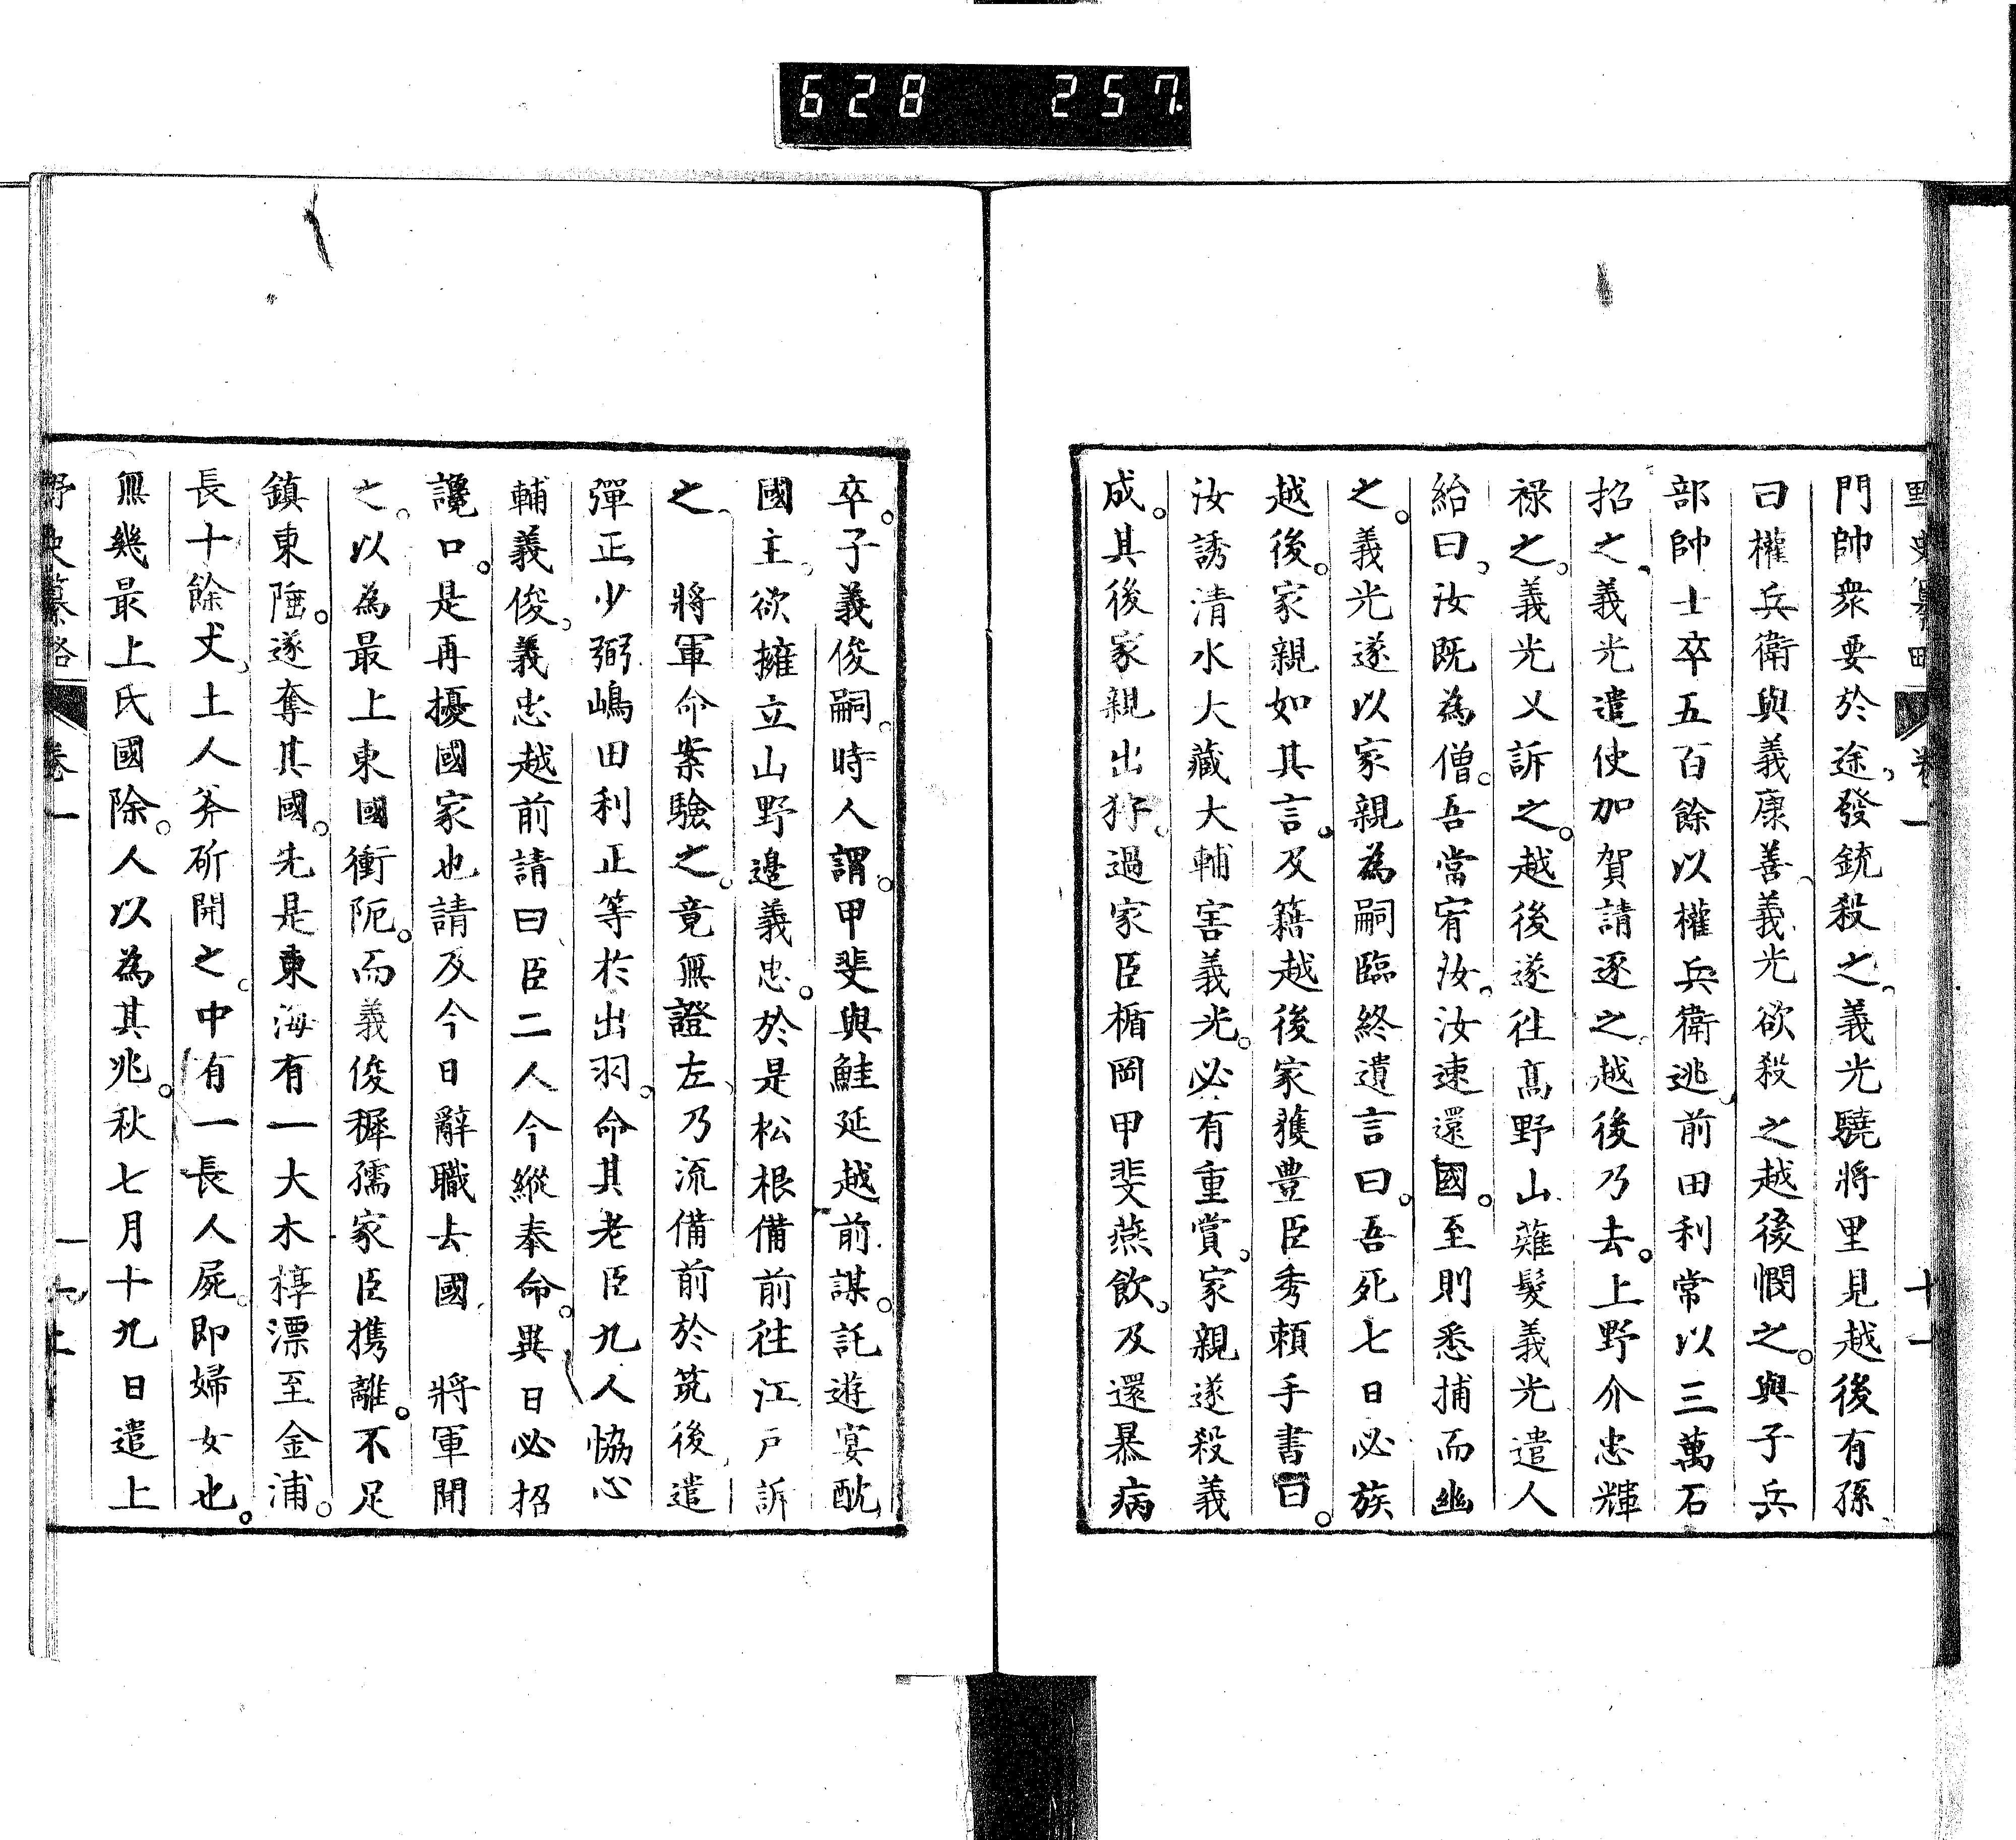 628 257.
十一
門帥衆要於途、發銃殺之、義光驍將里見越後有孫、
曰權兵衛與義康善、義光欲殺之越後憫之。與子兵
部帥士卒五百餘以權兵衛逃、前田利常以三萬石
招之、義光遣使加賀請逐之、越後乃去。上野介忠輝
祿之。義光又訴之。越後遂往髙野山薙髮義光遣人
紿曰、汝既為僧。吾當宥汝、汝速還國。至則悉捕而幽
之。義光遂以家親為嗣臨終遺言曰。吾死七日必族
越後。家親如其言。及籍越後家獲豊臣秀頼手書曰。
汝誘清水大藏大輔害義光。必有重賞。家親遂殺義
成。其後家親出狩。過家臣楯岡甲斐燕飲。及還暴病
卒。子義俊嗣。時人謂。甲斐與鮭延越前謀。託遊宴酖
國主。欲擁立山野邉義忠。於是松根備前往江戸訴
之、 將軍命案驗之。竟無證左、乃流備前於筑後、遣
彈正少弼嶋田利正等於出羽。命其老臣九人恊心
輔義俊。義忠越前請曰、臣二人今縱奉命。異日必招
讒口。是再擾國家也請及今日辭職去國 將軍聞
之。以為最上東國衝阨。而義俊穉孺家臣携離。不足
鎮東陲。遂奪其國。先是東海有一大木椁漂至金浦。
長十餘丈。土人斧斫開之。中有一長人屍。即婦女也。
無幾最上氏國除。人以為其兆。秋七月十九日遣上
野史纂略 卷一